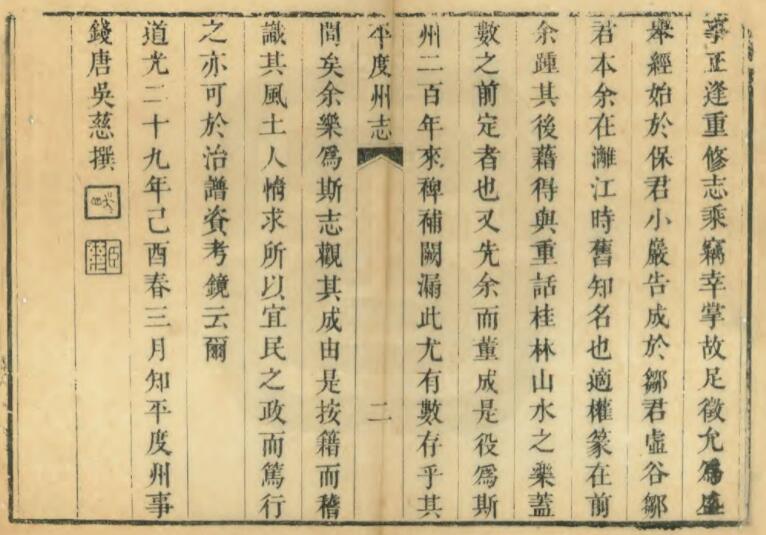 事正逢重修志乘竊幸掌故足徵允為盛
舉經始於保君小嚴告成於鄒君虛谷鄒
君本余在灕江時舊知名也適權篆在前
余踵其後藉得與重話桂林山水之樂蓋
數之前定者也又先余而董成是役為斯
州二百年來稗補闕漏此尤有數存乎其
平度州志
二
間矣余樂為斯志觀其成由是按籍而稽
識其風土人情求所以宜民之政而篤行
之亦可於治譜資考鏡云爾
道光二十九年己酉春三月知平度州事
錢唐吳慈撰